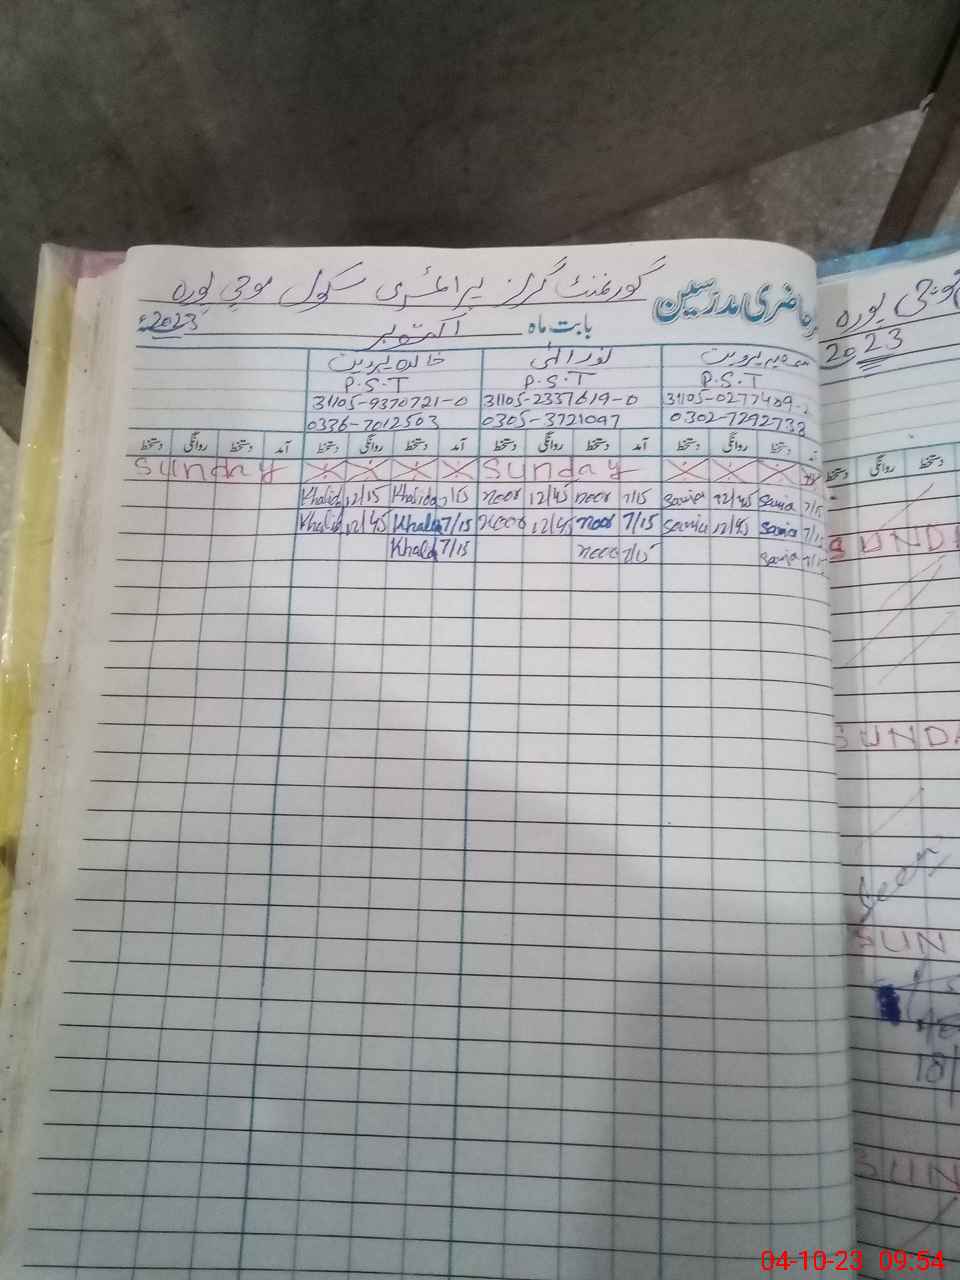 حاضری مدرسین گورنمنٹ گرلز پرائمری سکول موچی پورہ
بابت ماہ اکتوبر 2023ء
پروین نور الہی خالدہ پروین
P.S.T P.S.T P.S.T
31105-0277489-2 31105-2337619-0 31105-9370721-0
0302-7292738 0305-3721097 0336-7012503
آمد دستخط روانگی دستخط آمد دستخط روانگی دستخط آمد دستخط روانگی دستخط
Sunday Sunday
Khalid 12/15 Khalida 7/15 noor 12/45 noor 7/15 Savia 12/45 Savia 7/15
Khalid 12/45 Khalda 7/15 noor 12/45 noor 7/15 Savia 12/45 Savia 7/15
Khald 7/15 noor 7/15 Savia 7/15
موچی پورہ
2023
روانگی دستخط
SUNDA
SUNDA
Seen
SUN
18/
SUN
04-10-23 09:54